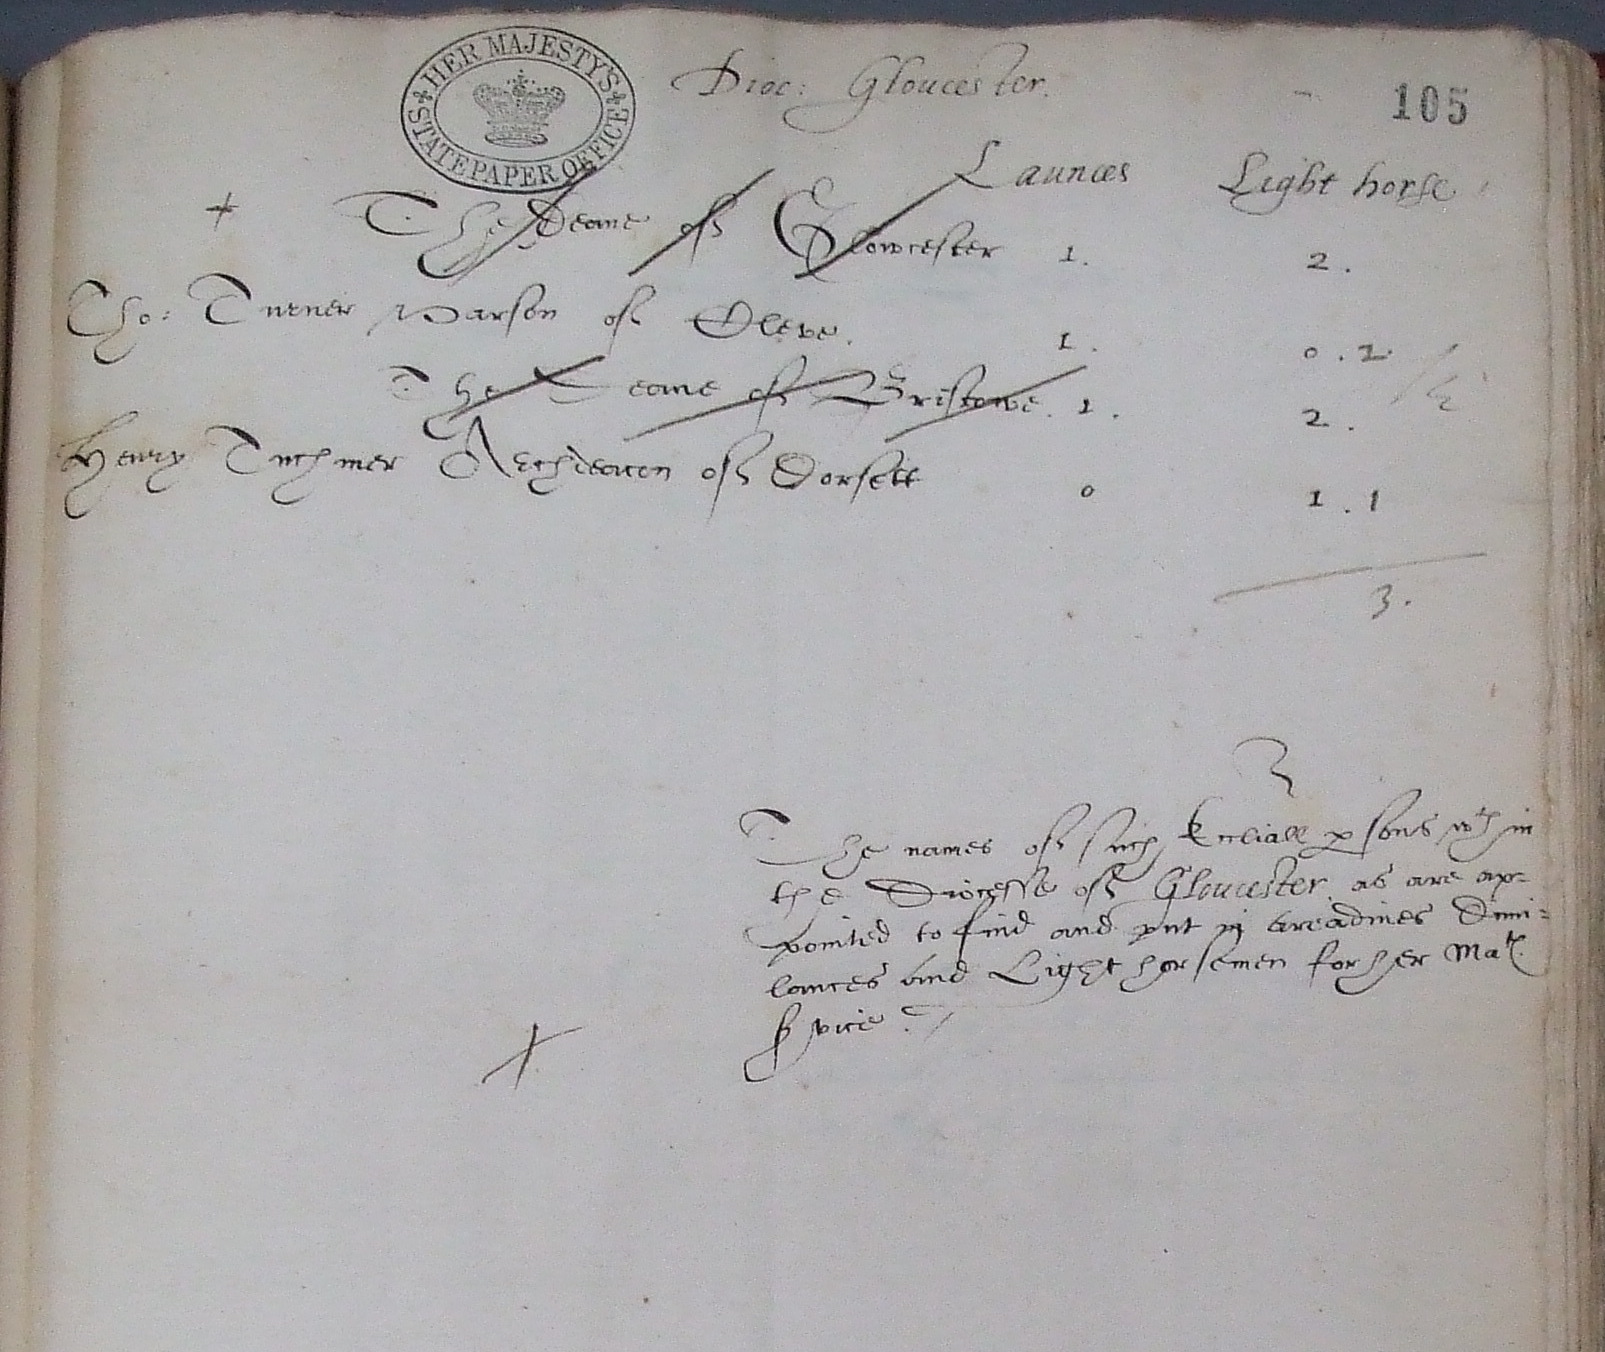 HER MAJESTY'S STATE PAPER OFFICE
Dioc: Gloucester.
105
Launces Light horse
+ The Deane of Glowcester 1. 2.
Tho: Turner Parson of Oleve. 1. 0.2
The Deane of Bristowe. 1. 2.
Henry Archdeacon of Dorsett 0 1.1
3.
The names of such persons wth in
the Diocesse of Gloucester as are ap=
pointed to find and put in areadines Dimi=
lances and Light horsemen for her Matꝭ
service.